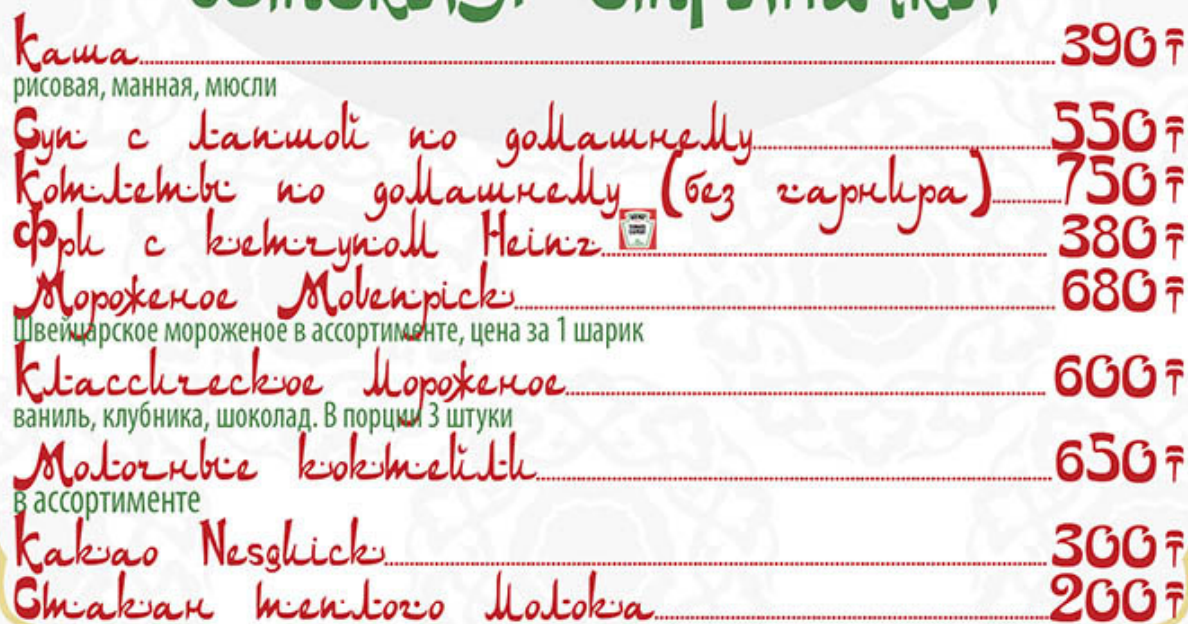 Детская страничка
Каша 390₸
рисовая, манная, мюсли
Суп с лапшой по домашнему 550₸
Котлеты по домашнему (без гарнира) 750₸
Фри с кетчупом Heinz 380₸
Мороженое Movenpick 680₸
Швейцарское мороженое в ассортименте, цена за 1 шарик
Классическое мороженое 600₸
ваниль, клубника, шоколад. В порции 3 штуки
Молочные коктейли 650₸
в ассортименте
Какао Nesquick 300₸
Стакан теплого молока 200₸